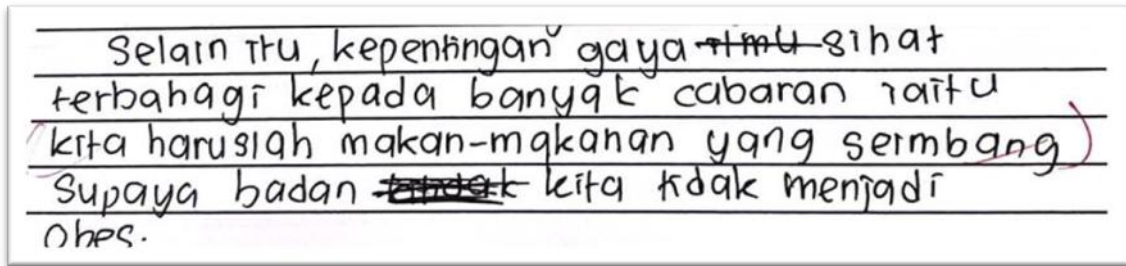 Selain itu, kepentingan gaya sihat
terbahagi kepada banyak cabaran iaitu
kita haruslah makan-makanan yang seimbang
supaya badan kita tidak menjadi
obes.